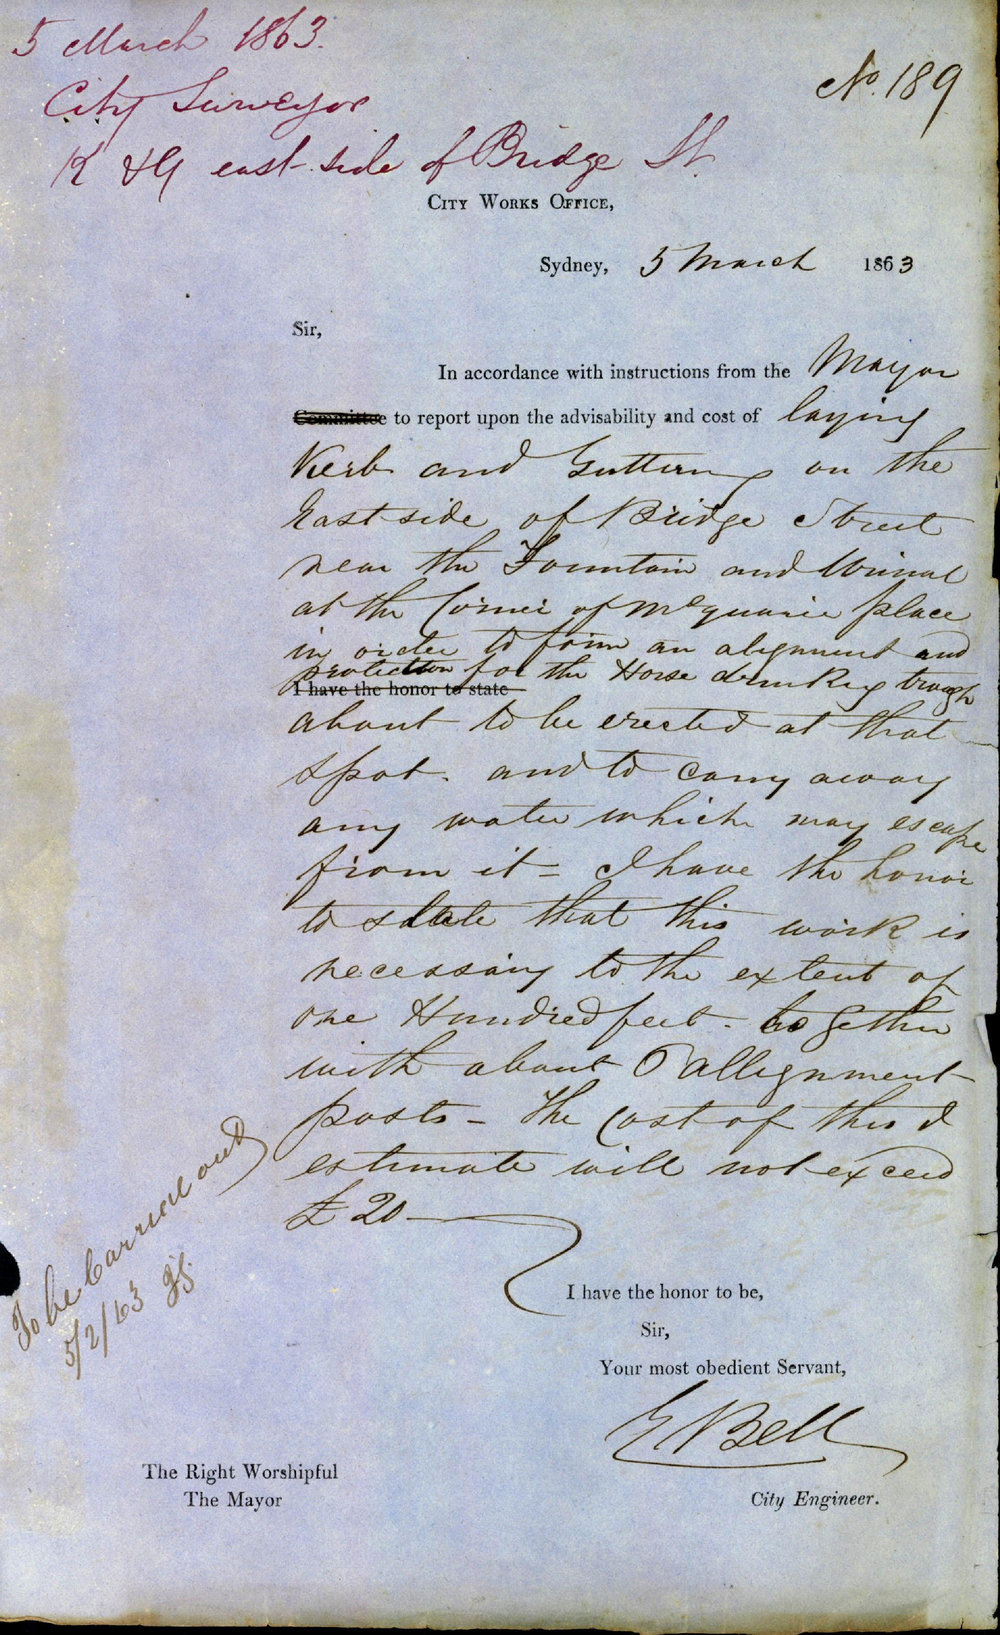 5 March 1863.
No. 189
City Surveyor
K & G east side of Bridge St.
City Works Office,
Sydney, 5 March 1863
Sir,
In accordance with instructions from the Mayor
Committee to report upon the advisability and cost of laying
Kerb and Guttering on the
East side of Bridge Street
near the Fountain and Urinal
at the Corner of McQuarie place
in order to form an alignment and
protection for the Horse drinking trough
I have the honor to state
about to be erected at that
spot. and to carry away
any water which may escape
from it = I have the honor
to state that this work is
necessary to the extent of
one Hundred feet - together
with about allignment
posts - The Cost of this I
estimate will not exceed
£ 20
To be Carried out
5/2/63
I have the honor to be,
Sir,
Your most obedient Servant,
E Bell
The Right Worshipful
The Mayor
City Engineer.